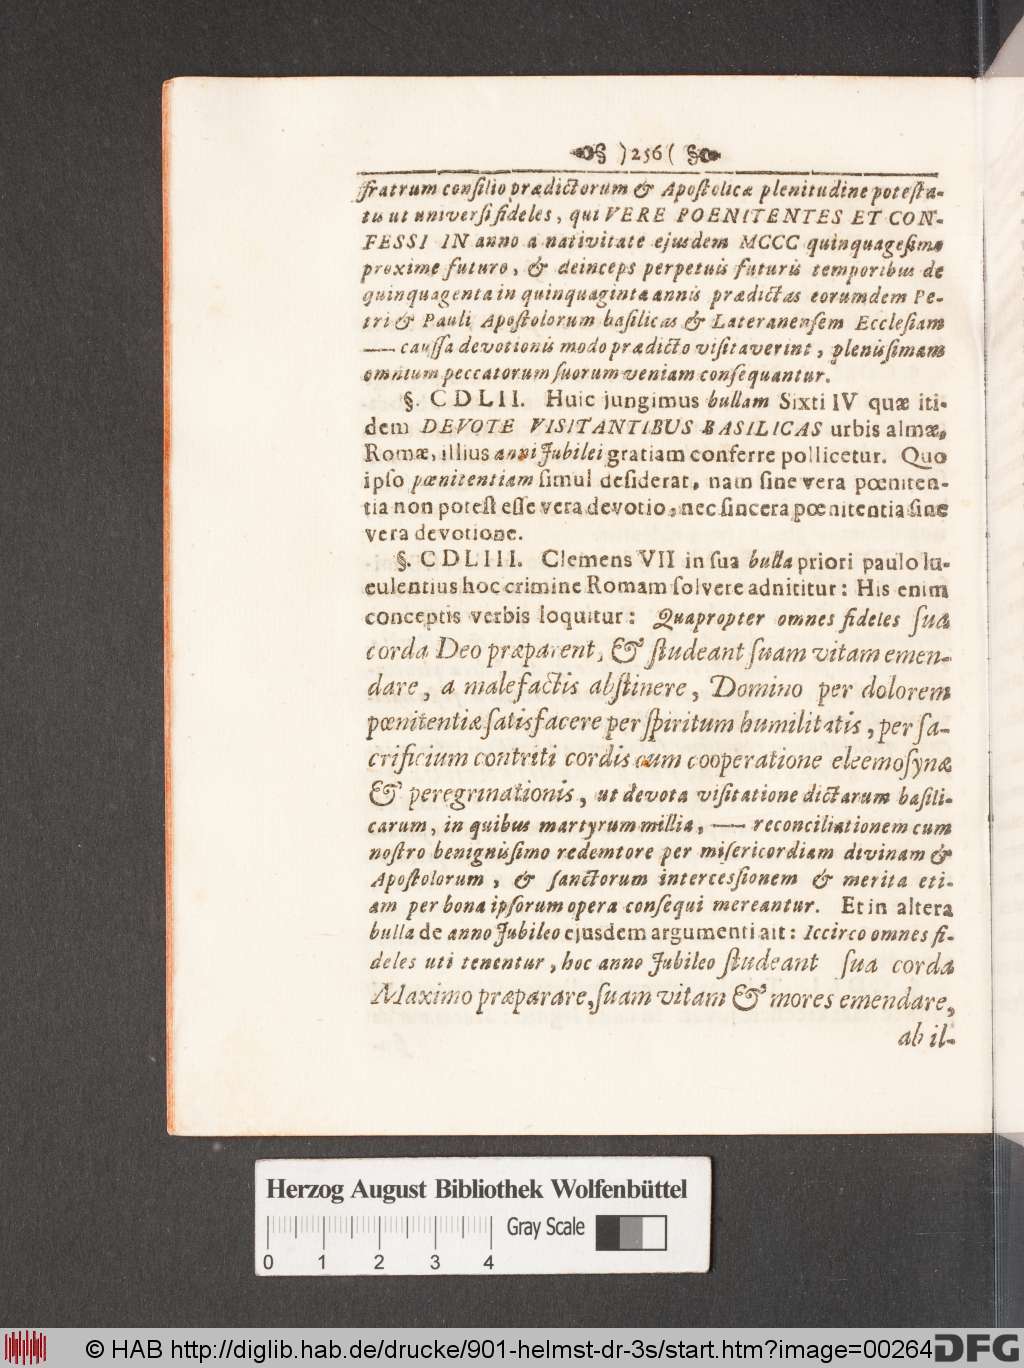 )256(
ſfratrum conſilio prædictorum & Apoſtolicæ plenitudine poteſta-
tis ut univerſi fideles, qui VERE POENITENTES ET CON-
FESSI IN anno a nativitate ejusdem MCCC quinquageſimo
proxime futuro, & deinceps perpetuis futuris temporibus de
quinquagenta in quinquaginta annis prædictas eorumdem Pe-
tri & Pauli Apoſtolorum baſilicas & Lateranenſem Eccleſiam
— cauſſa devotionis modo prædicto viſitaverint, pleniſſimam
omnium peccatorum ſuorum veniam conſequantur.
§. CDLII. Huic jungimus bullam Sixti IV quæ iti-
dem DEVOTE VISITANTIBUS BASILICAS urbis almæ,
Romæ, illius anni Jubilei gratiam conferre pollicetur. Quo
ipſo pœnitentiam ſimul deſiderat, nam ſine vera pœniten-
tia non poteſt eſſe vera devotio, nec ſincera pœnitentia ſine
vera devotione.
§. CDLIII. Clemens VII in ſua bulla priori paulo lu-
culentius hoc crimine Romam ſolvere adnititur: His enim
conceptis verbis loquitur: Quapropter omnes fideles ſua
corda Deo præparent, & ſtudeant ſuam vitam emen-
dare, a malefactis abſtinere, Domino per dolorem
pœnitentiæ ſatisfacere per ſpiritum humilitatis, per ſa-
crificium contriti cordis cum cooperatione eleemoſynæ
& peregrinationis, ut devota viſitatione dictarum baſili-
carum, in quibus martyrum millia, — reconciliationem cum
noſtro benigniſſimo redemtore per miſericordiam divinam &
Apoſtolorum, & ſanctorum interceſſionem & merita eti-
am per bona ipſorum opera conſequi mereantur. Et in altera
bulla de anno Jubileo ejusdem argumenti ait: Iccirco omnes fi-
deles uti tenentur, hoc anno Jubileo ſtudeant ſua corda
Maximo præparare, ſuam vitam & mores emendare,
ab il-
Herzog August Bibliothek Wolfenbüttel
Gray Scale
0 1 2 3 4
© HAB http://diglib.hab.de/drucke/901-helmst-dr-3s/start.htm?image=00264
DFG